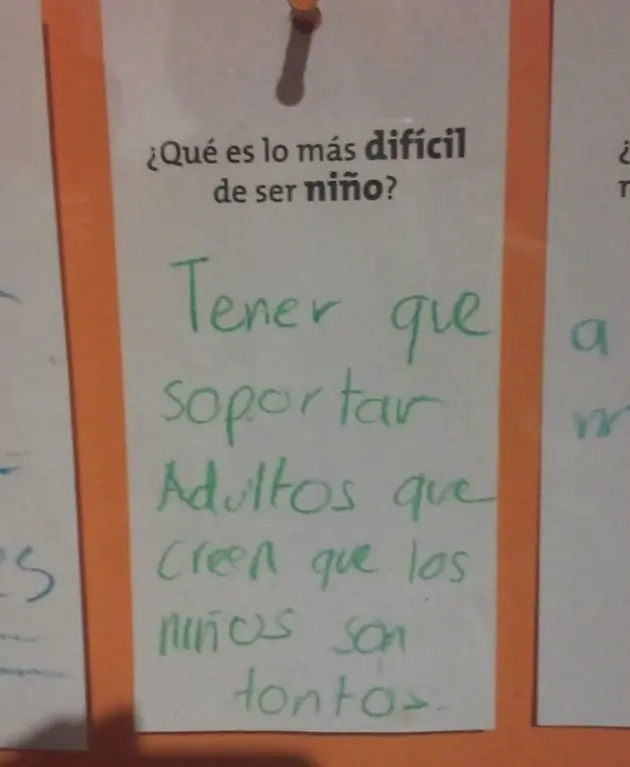 ¿Qué es lo más difícil
de ser niño?
Tener que
soportar
Adultos que
creen que los
niños son
tontos.
a